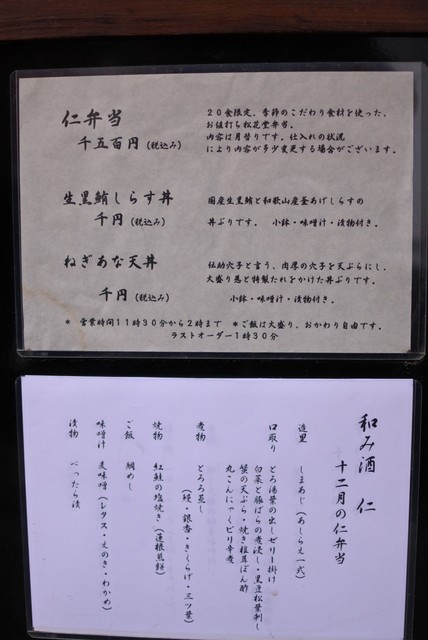 仁弁当
千五百円(税込み)
20食限定、季節のこだわり食材を使った、
お値打ち松花堂弁当。
内容は月替りです。仕入れの状況
により内容が多少変更する場合がございます。
生黒鮪しらす丼
千円(税込み)
国産生黒鮪と和歌山産釜あげしらすの
丼ぶりです。 小鉢・味噌汁・漬物付き。
ねぎあな天丼
千円(税込み)
伝助穴子と言う、肉厚の穴子を天ぷらにし、
大盛り葱と特製たれをかけた丼ぶりです。
小鉢・味噌汁・漬物付き。
* 営業時間11時30分から2時まで *ご飯は大盛り、おかわり自由です。
ラストオーダー1時30分
和み酒 仁
十二月の仁弁当
造里 しまあじ(あしらえ一式)
口取り とろ湯葉の出しゼリー掛け
白菜と豚ばらの煮浸し・黒豆松葉刺し
蟹の天ぷら・焼き椎茸ぽん酢
丸こんにゃくピリ辛煮
煮物 とろろ蒸し
(鰻・銀杏・きくらげ・三ツ葉)
焼物 紅鮭の塩焼き(蓮根煎餅)
ご飯 鯛めし
味噌汁 麦味噌(レタス・えのき・わかめ)
漬物 べったら漬